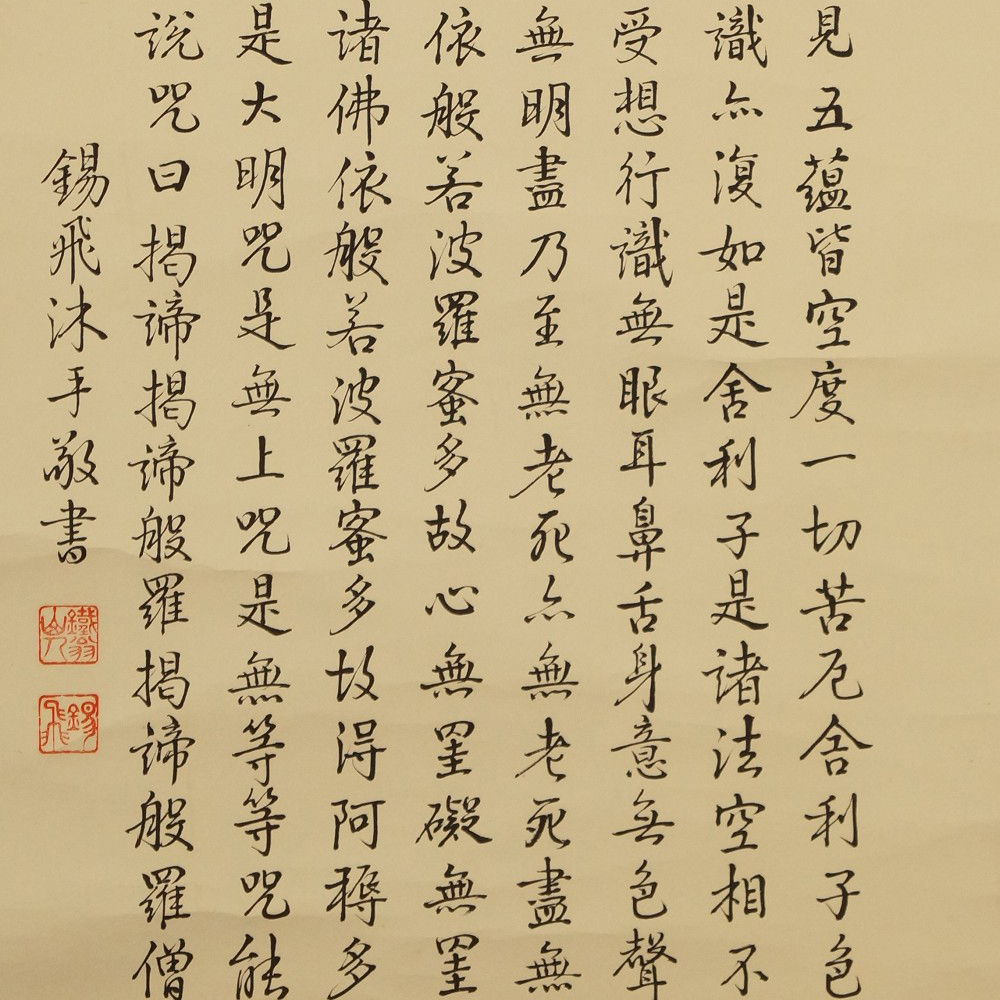 見五蘊皆空度一切苦厄舍利子色
識亦復如是舍利子是諸法空相不
受想行識無眼耳鼻舌身意無色聲
無明盡乃至無老死亦無老死盡無
依般若波羅蜜多故心無罣礙無罣
諸佛依般若波羅蜜多故得阿耨多
是大明咒是無上咒是無等等咒能
說咒曰揭諦揭諦般羅揭諦般羅僧
錫飛沐手敬書
錫飛